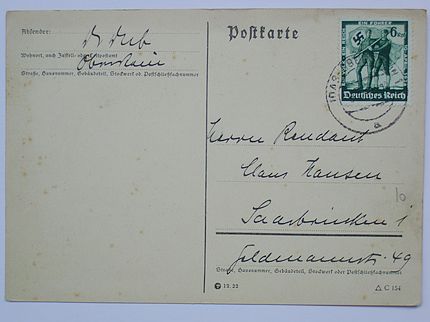 Absender:
Postkarte
Wohnort, auch Zustell- oder Leitpostamt
Oberstein
Straße, Hausnummer, Gebäudeteil, Stockwerk od. Postschließfachnummer
EIN FÜHRER
6
Deutsches Reich
Herrn Rendant
Claus Hansen
Saarbrücken 1
Feldmannstr. 49
Straße, Hausnummer, Gebäudeteil, Stockwerk oder Postschließfachnummer
C 154
10